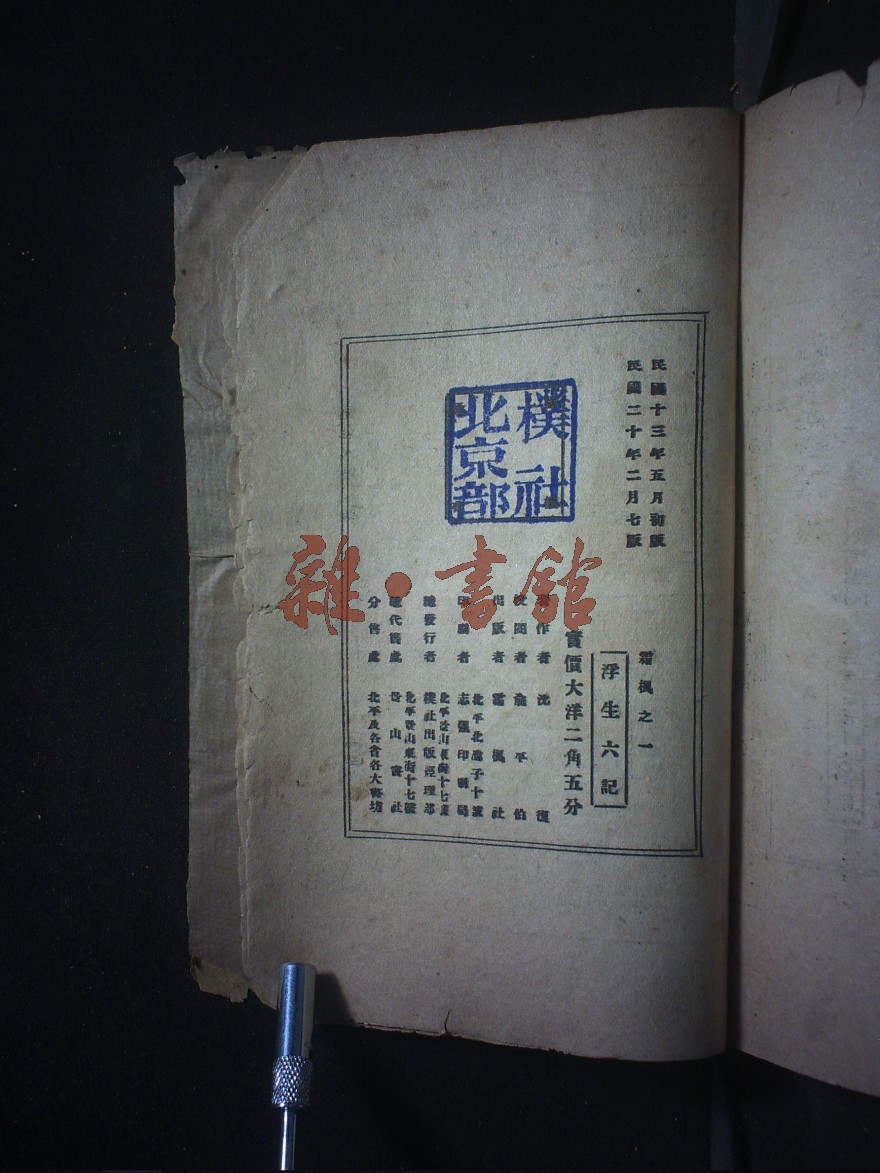 民國十三年五月初版
民國二十年二月七版
樸社
北京部
霜楓之一
浮生六記
實價大洋二角五分
著作者 沈復
校閱者 俞平伯
出版者 霜楓社
北平北池子十號
印刷者 志強印刷局
北平景山東街十七號
總發行者 樸社出版經理部
北平景山東街十七號
總代售處 景山書社
分售處 北平及各省各大書坊
雜·書館